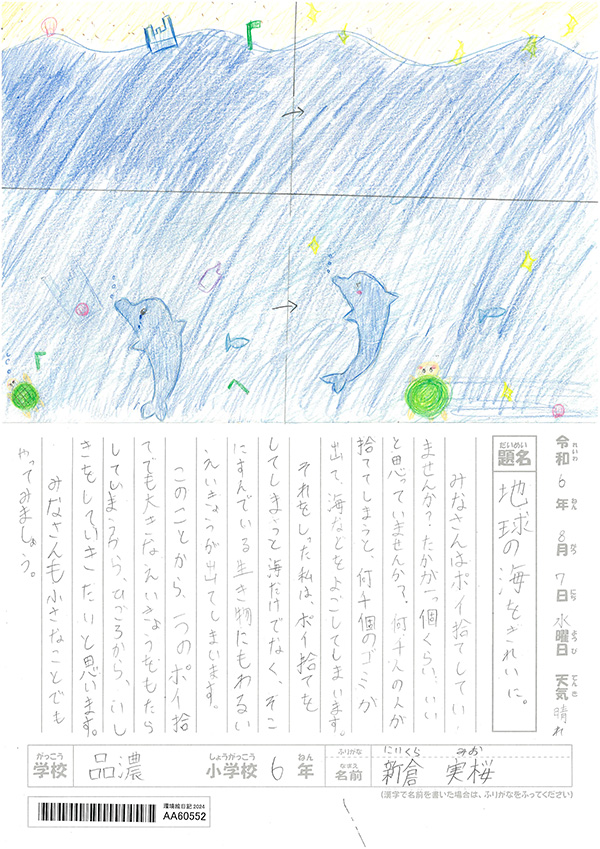 令和6年8月7日水曜日 天気晴れ
れいわ ねん がつ にち ようび てんき
だいめい
題名
地球の海をきれいに。
みなさんはポイ捨てしてい
ませんか?たかが一個くらい、いい
と思っていませんか?何千人の人が
捨ててしまうと、何千個のゴミが
出て、海などをよごしてしまいます。
それをしった私は、ポイ捨てを
してしまうと海だけでなく、そこ
にすんでいる生き物にもわるい
えいきょうが出てしまいます。
このことから、一つのポイ捨
てでも大きなえいきょうをもたら
してしまうから、ひごろから、
きをしていきたいと思います。
みなさんも小さなことでも
やってみましょう。
がっこう しょうがっこう ねん
学校 品濃 小学校 6年
ふりがな にいくら みお
なまえ
名前 新倉 実桜
(漢字で名前を書いた場合は、ふりがなをふってください)
環境絵日記2024
AA60552